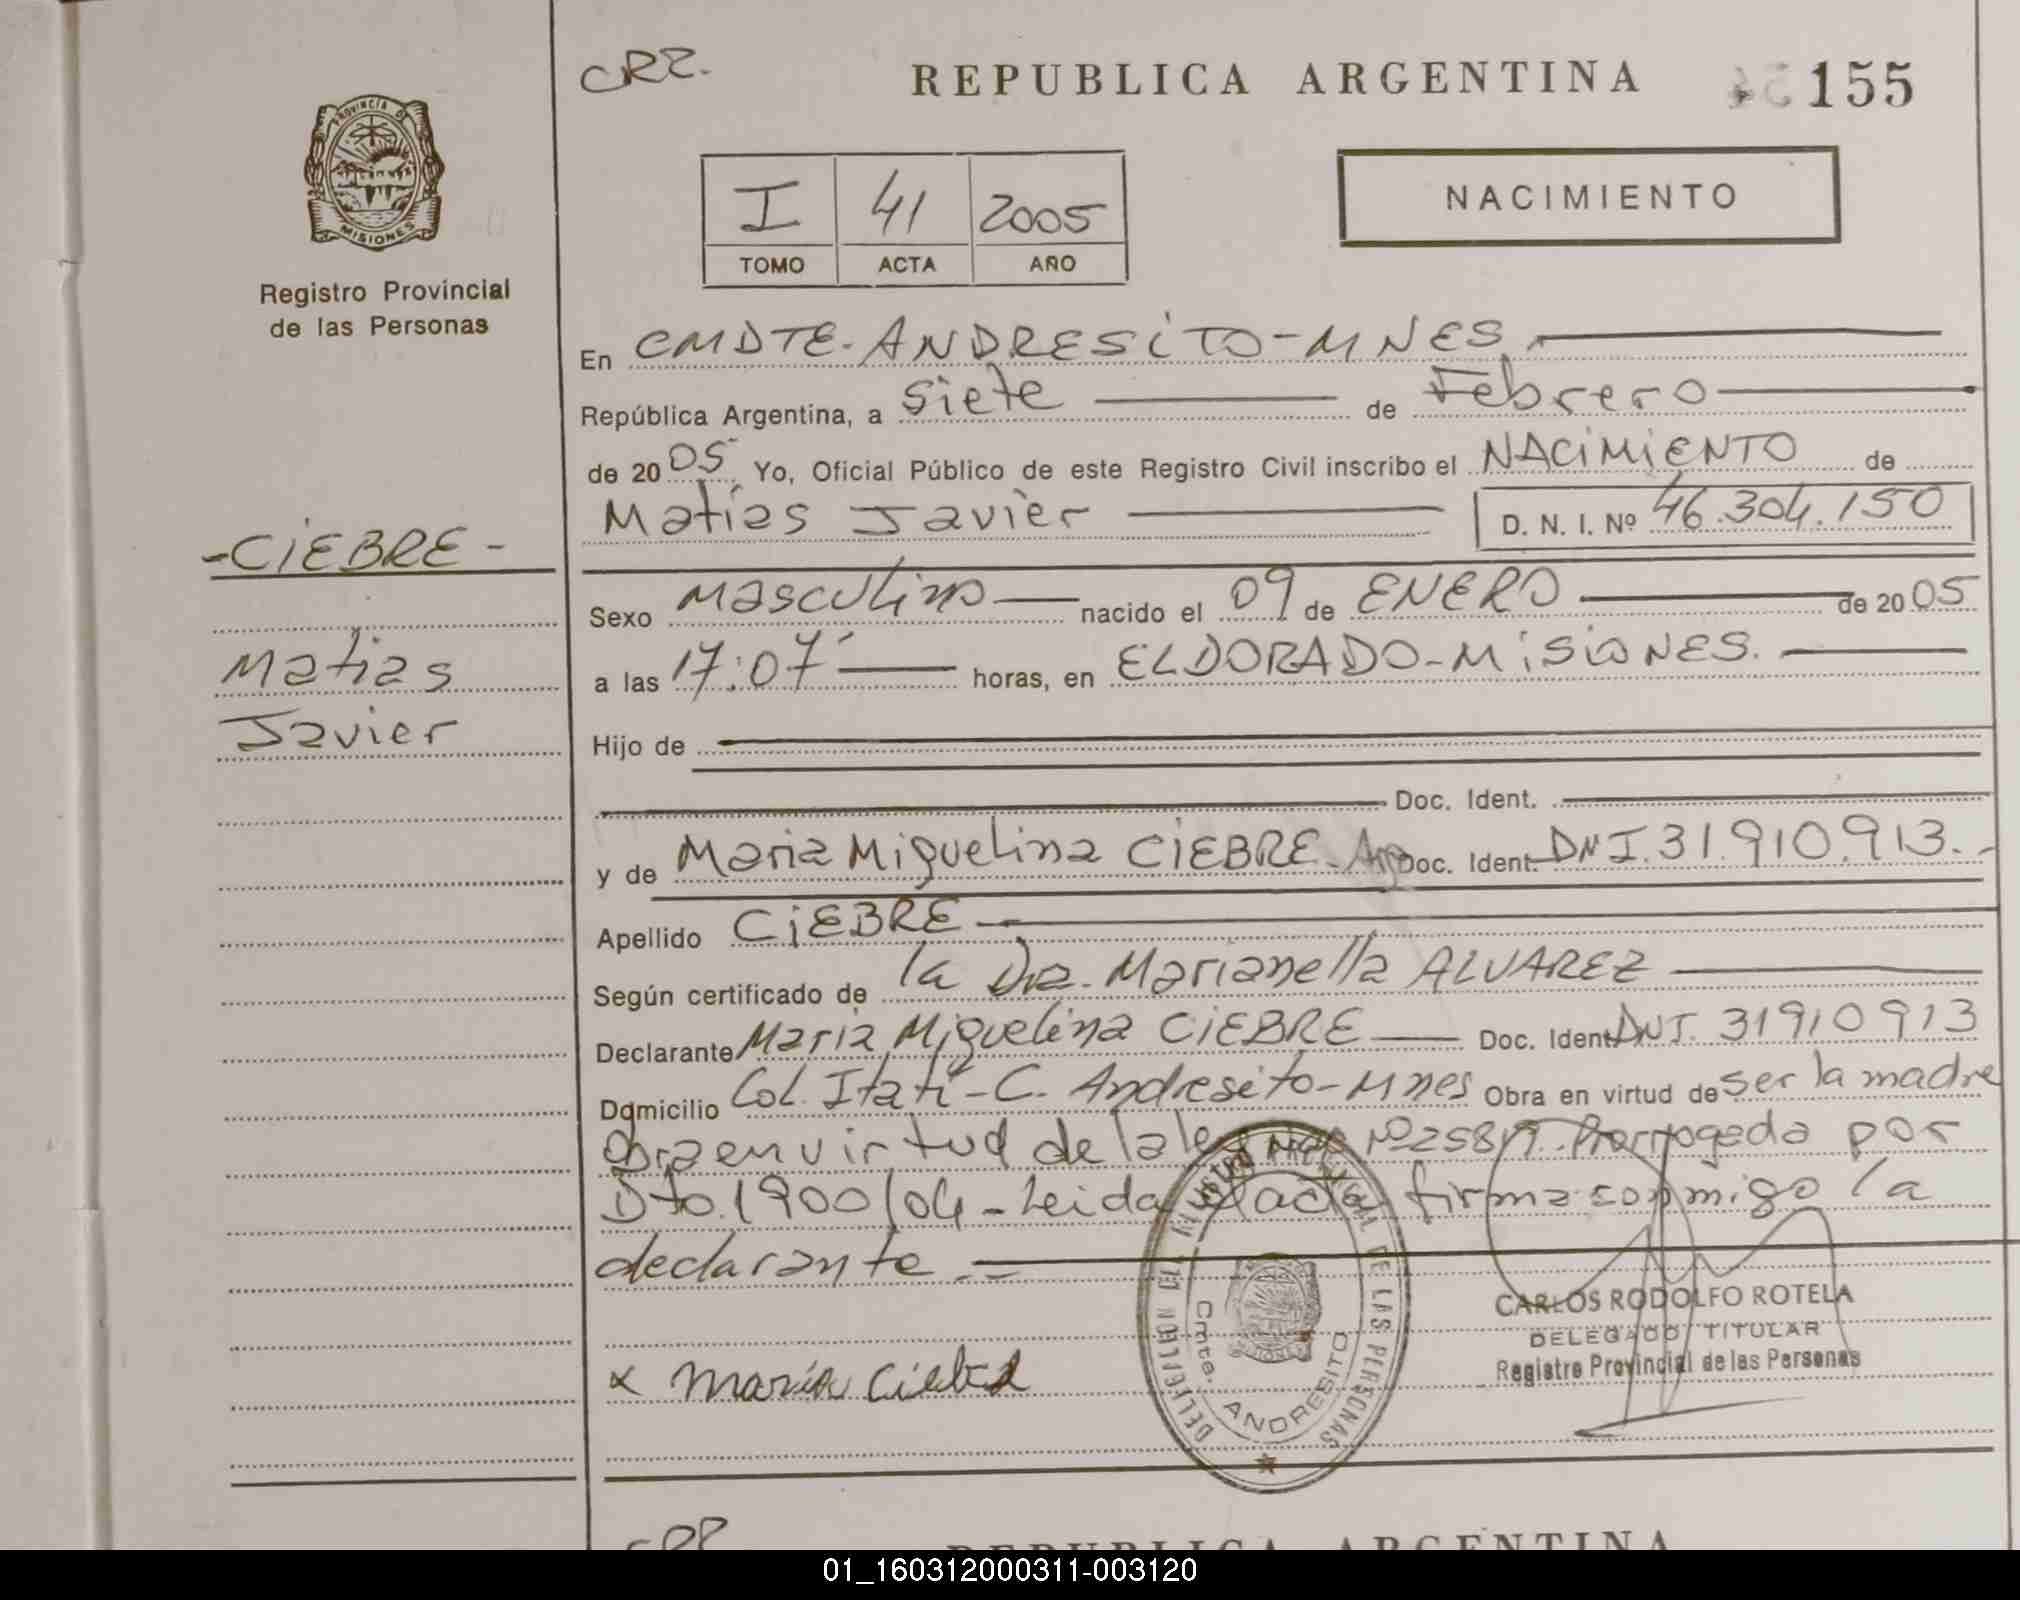 CRZ.
REPUBLICA ARGENTINA
155
PROVINCIA DE
MISIONES
Registro Provincial
de las Personas
I 41 2005
TOMO ACTA AÑO
NACIMIENTO
En CMDTE. ANDRESITO - MNES
República Argentina, a siete de Febrero
de 2005 Yo, Oficial Público de este Registro Civil inscribo el NACIMIENTO de
Matías Javier D. N. I. Nº 46.304.150
- CIEBRE -
Matias
Javier
Sexo Masculino nacido el 09 de ENERO de 2005
a las 17:07 horas, en ELDORADO - MISIONES.
Hijo de
Doc. Ident.
y de Maria Miguelina CIEBRE - Arg Doc. Ident. DNI. 31.910.913.-
Apellido CIEBRE
Según certificado de la Dra. Marianella ALVAREZ
Declarante Maria Miguelina CIEBRE Doc. Ident. DNI. 31910913
Domicilio Col. Itatí - C. Andresito - Mnes Obra en virtud de ser la madre
Obra en virtud de la ley Nº 25819. Prorrogada por
Dto. 1900/04 - Leida el acta firma conmigo la
declarante.-
DELEGACION DEL REGISTRO PROVINCIAL DE LAS PERSONAS
Cmte. ANDRESITO
CARLOS RODOLFO ROTELA
DELEGADO TITULAR
Registro Provincial de las Personas
x María Ciebre
REPUBLICA ARGENTINA
01_160312000311-003120